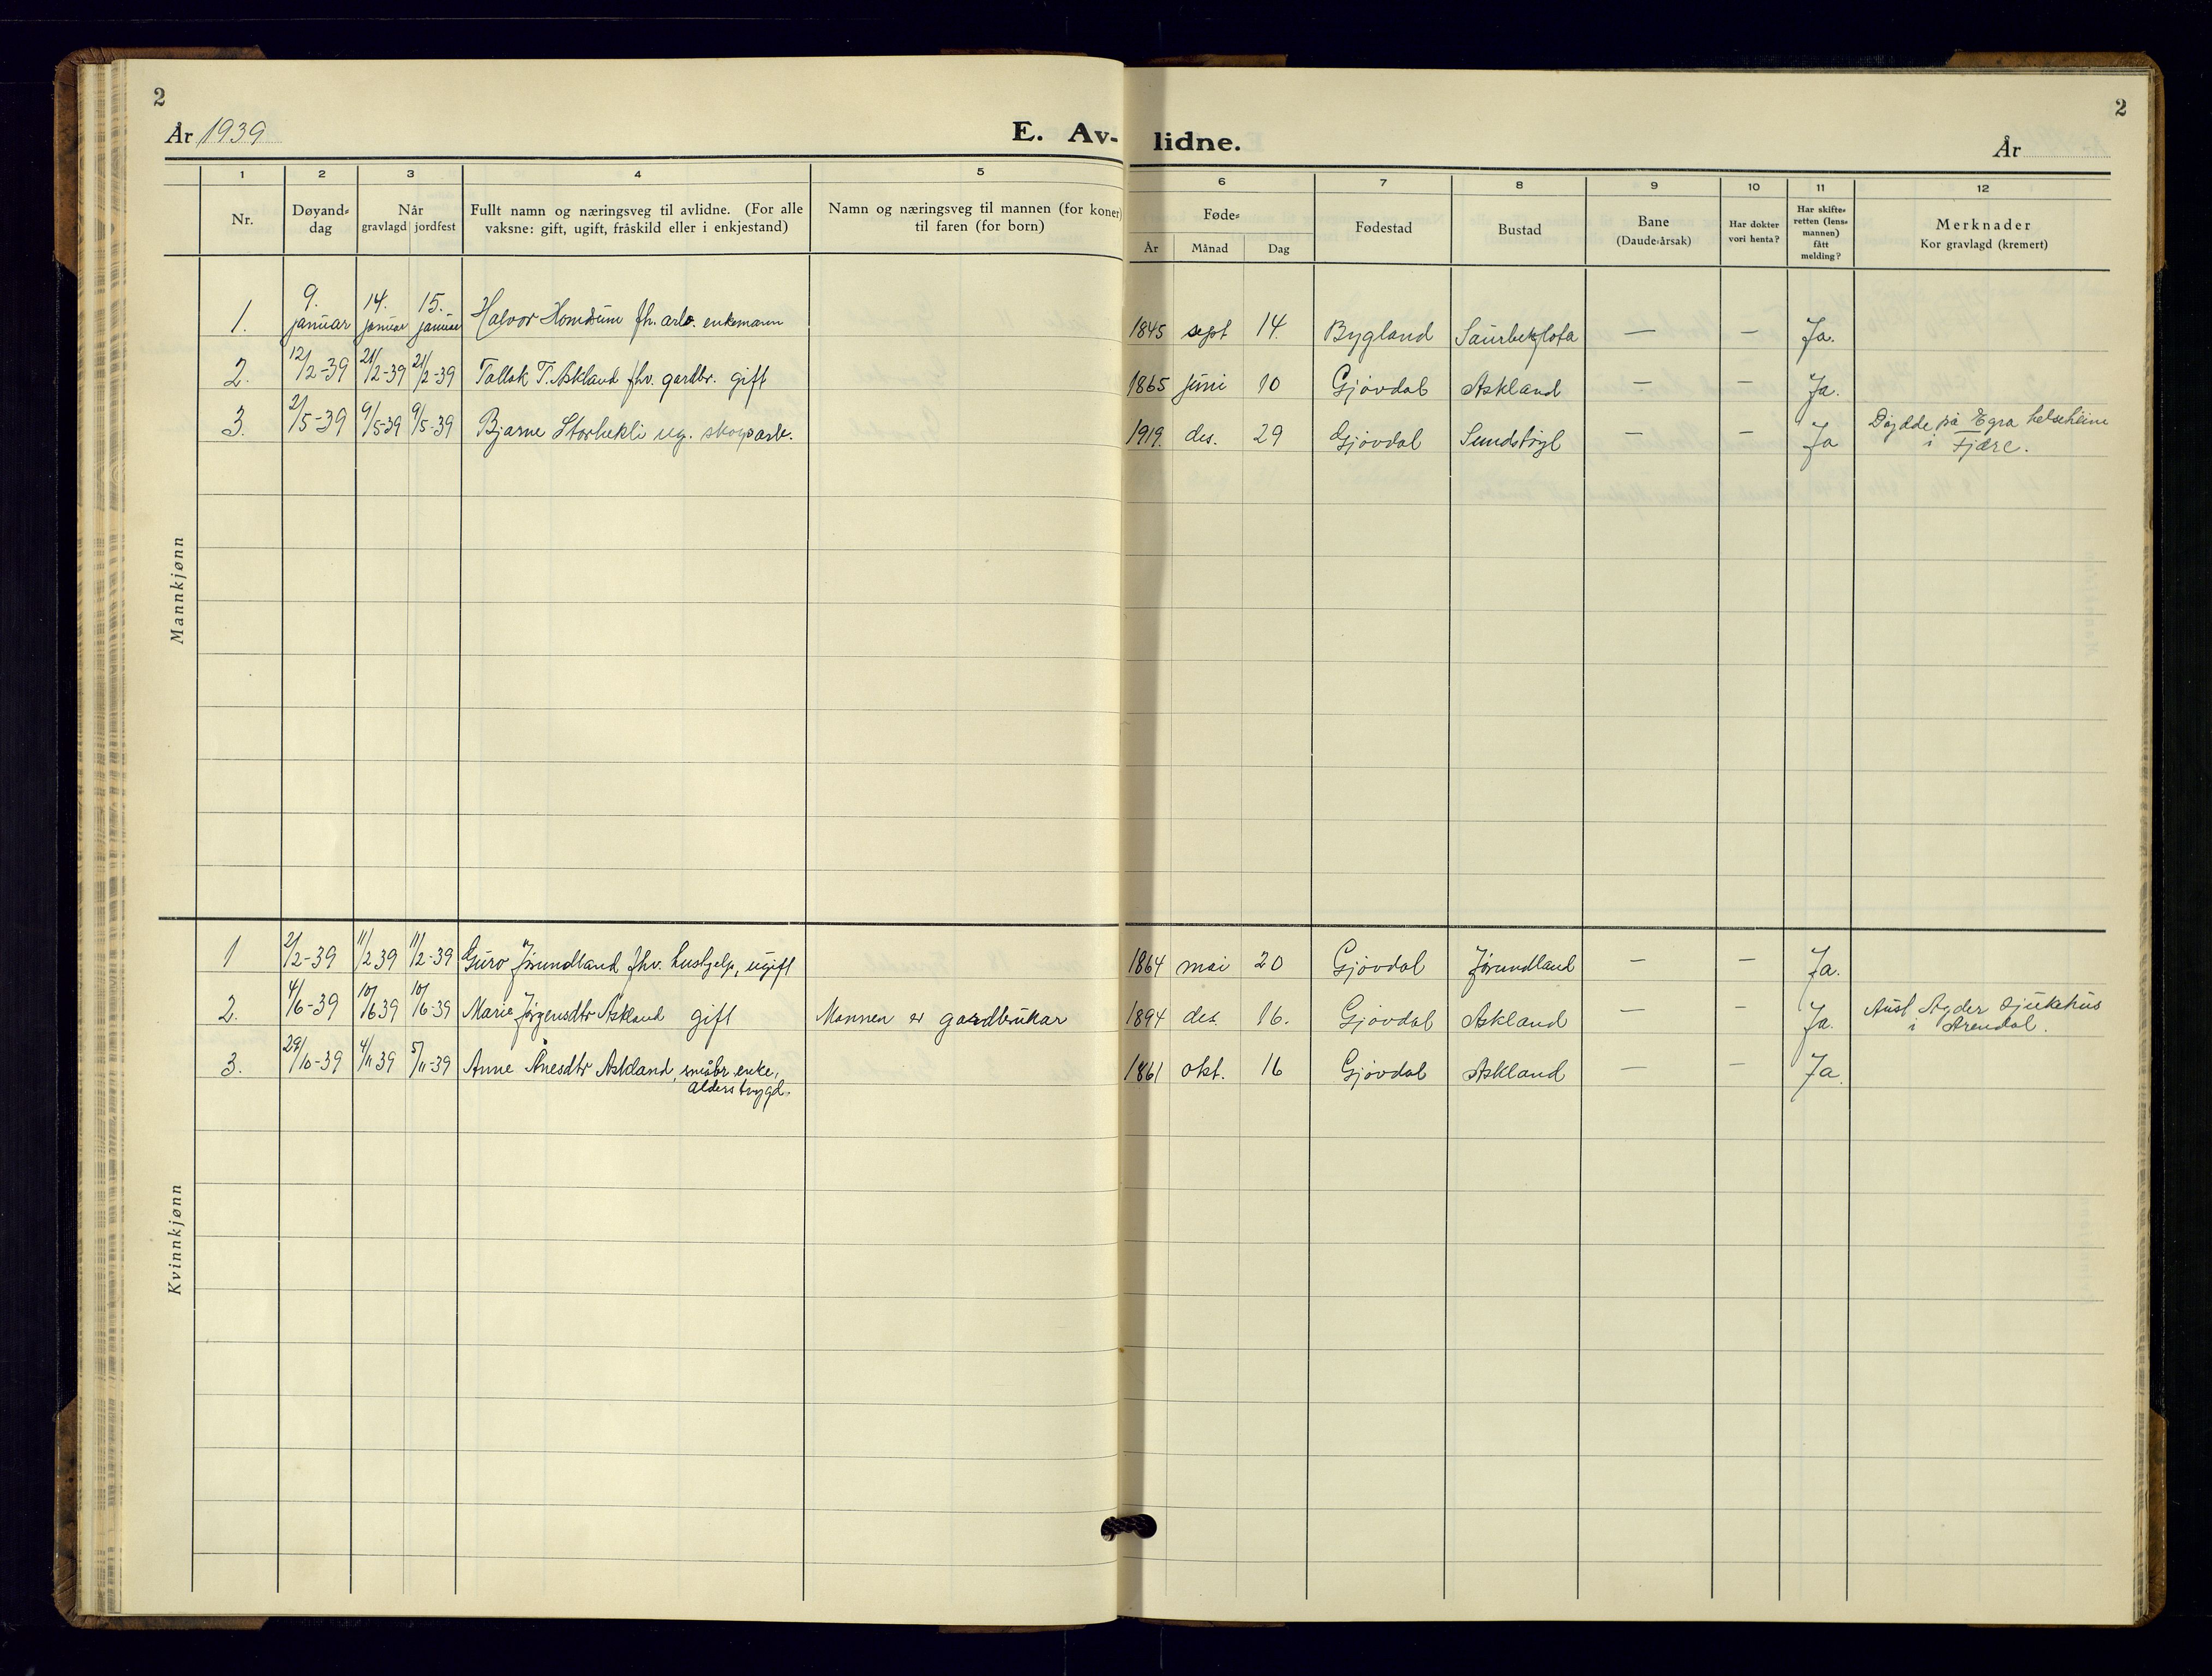 2
År 1939
E. Av-
lidne.
År
2
1 2 3 4 5 6 7 8 9 10 11 12
Nr.
Døyand-
dag
Når
gravlagd jordfest
Fullt namn og næringsveg til avlidne. (For alle
vaksne: gift, ugift, fråskild eller i enkjestand)
Namn og næringsveg til mannen (for koner)
til faren (for born)
Føde-
År Månad Dag
Fødestad
Bustad
Bane
(Daude-årsak)
Har dokter
vori henta?
Har skifte-
retten (lens-
mannen)
fått
melding?
Merknader
Kor gravlagd (kremert)
Mannkjønn
1. 9. januar 14. januar 15. januar Halvor Homdrum fh. arb. enkemann 1845 sept 14. Bygland — — Ja.
2. 12/2-39 21/2-39 21/2-39 Tallak T. Askland fhv. gardbr. gift 1865 juni 10 Gjøvdal Askland — — Ja.
3. 2/5-39 9/5-39 9/5-39 Bjarne Storhekli ug. skogsarb. 1919. des. 29 Gjøvdal Sundstøyl — — Ja Døydde på Egra helseheim
i Fjære.
Kvinnkjønn
1 2/2-39 11/2 39 11/2-39 Guro Jørundland fhv. hushjelp, ugift 1864 mai 20 Gjøvdal Jørundland — — Ja.
2. 4/6-39 10/6 39 10/6-39 Marie Jørgensdtr Askland gift Mannen er gardbrukar 1894 des. 16. Gjøvdal Askland — — Ja. Aust Agder sjukehus
i Arendal.
3. 29/10-39 4/11 39 5/11-39 Anne Ånesdtr Askland, småbr. enke, 1861 okt. 16 Gjøvdal Askland — — Ja.
alderstrygd.